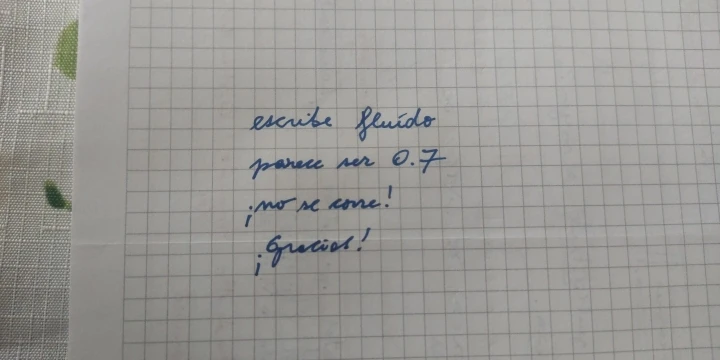 escribe fluído
parece ser 0.7
¡no se corre!
¡Gracias!